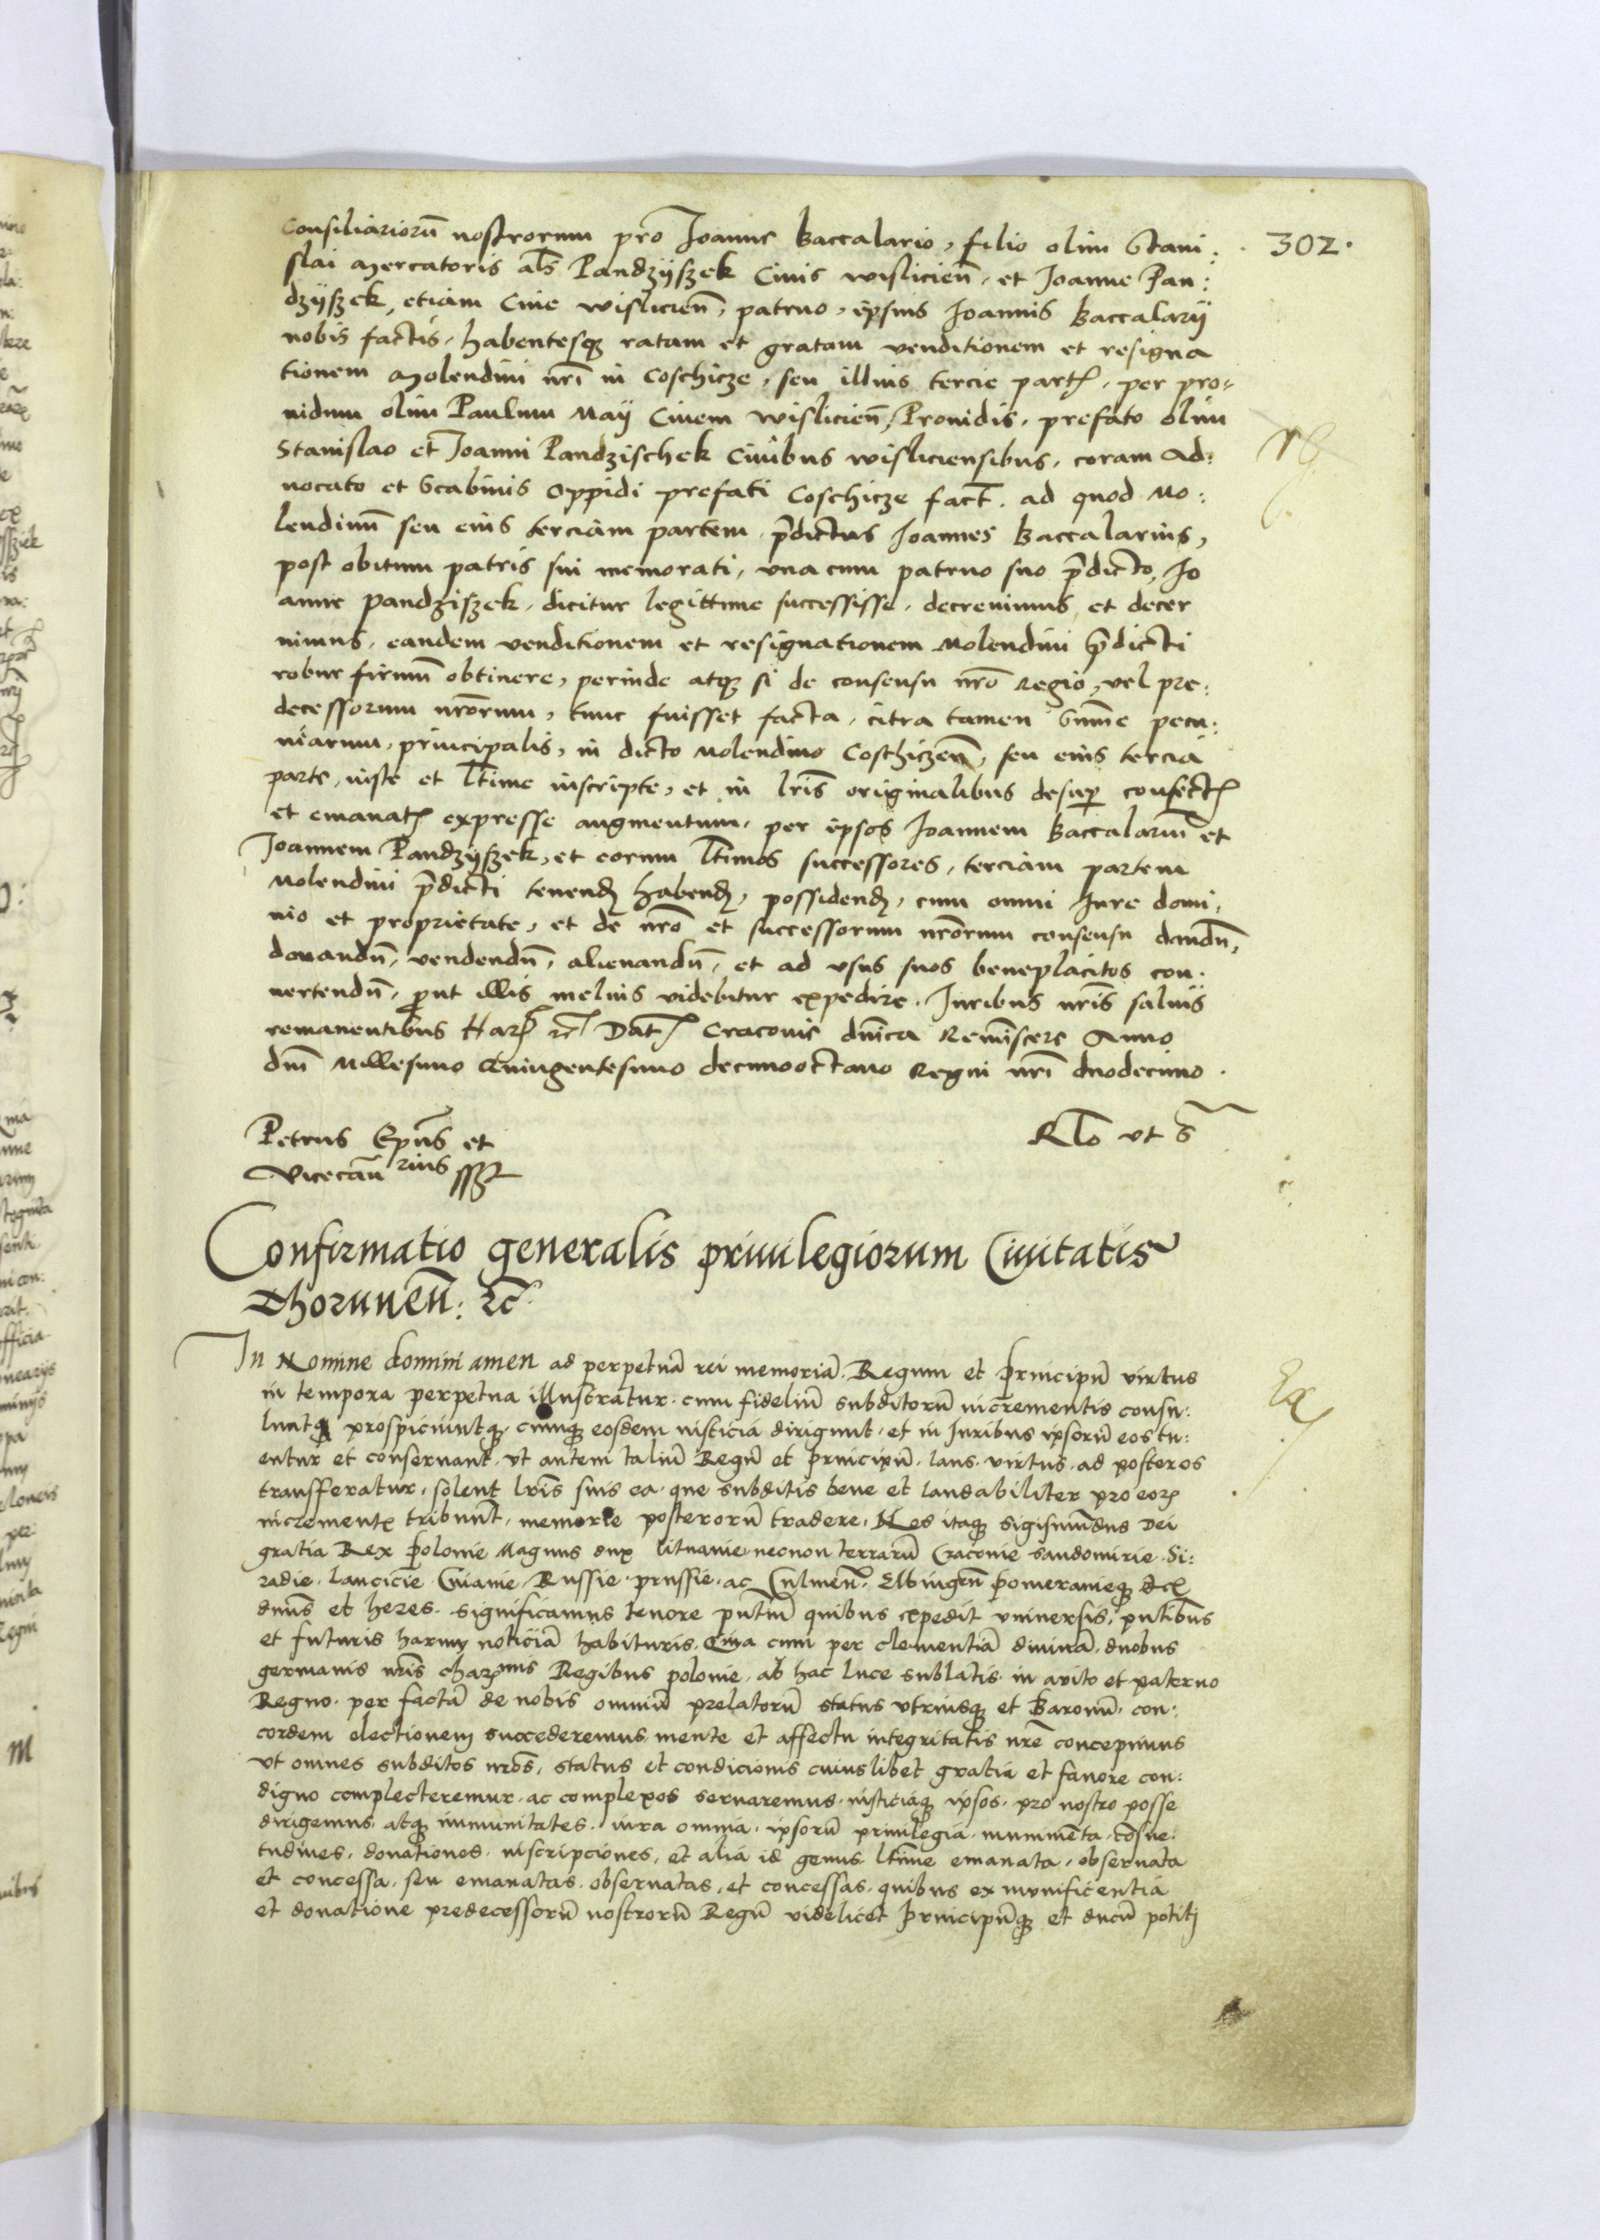 302.
Consiliariorū nostrorum pro Joanne Baccalario, filio olim Stani:
slai Mercatoris als Pandzÿszek Civis wislicien̄, et Joanne Pan:
dzÿszek, etiam Cive wislicien̄, patruo, ipsius Joannis Baccalarij
nobis factis, habentesqꝫ ratam et gratam venditionem et resigna
tionem Molendini nrī in Coschicze, seu illius tercie partꝭ, per pro=
uidum olim Paulum Maij Ciuem wislicien̄, Prouidis, prefato olim
Stanislao et Joanni Pandzischek Ciuibus wisliciensibus, coram Ad:
uocato et Scabinis Oppidi prefati Coschicze fact̄. ad quod Mo:
lendinū seu eius terciam partem, p̄dictus Joannes Baccalarius,
post obitum patris sui memorati, vna cum patruo suo p̄dicto, Jo
anne Pandziszek, dicitur legittime successisse, decreuimus et decer
nimus, eandem venditionem et resignationem Molendini p̄dicti
robur firmū obtinere, perinde atqꝫ si de consensu nrō Regio, vel pre:
decessorum nrōrum, tunc fuisset facta, citra tamen Sum̄e pecu:
niarum, principalis, in dicto Molendino Coschiczen̄, seu eius tercia
parte, iuste et ltīme inscripte, et in lrīs originalibus desuꝑ confectꝭ
et emanatꝭ expresse augmentum, per ipsos Joannem Baccalariū et
Joannem Pandzÿszek, et eorum ltīmos successores, terciam partem
Molendini p̄dicti tenendꝭ habendꝭ, possidendꝭ, cum omni Jure domi,
nio et proprietate, et de nrō et successorum nrōrum consensu dandū,
donandū, vendendū, alienandū, et ad vsus suos beneplacitos con.
uertendū, ꝓut illis melius videbitur expedire. Juribus nrīs saluis
remanentibus Harꝭ ꝛc̄ Datꝭ Cracouie dnīca Reminiscere Anno
dnī Millesimo Quingentesimo decimooctauo Regni nrī duodecimo.
Petrus Epūs et
Vicecan̄rius sszt
Rlō vt S̄
Confirmatio generalis priuilegiorum Ciuitatis
Thorunen̄: ꝛc̄.
In Nomine domini amen ad perpetuā rei memoriā. Regum et Principū virtus
in tempora perpetua illustratur. cum fideliū subditorū incrementis consu:
lunt prospiciuntqꝫ, cumqꝫ eosdem iusticia dirigunt, et in Juribus ipsorū eos tu:
entur et conseruant. vt autem taliū Regū et Principū, laus, virtus, ad posteros
transfferatur, solent lrīs suis ea, que subditis bene et laudabiliter pro eorꝫ
incrementꝭ tribunt, memorie posterorū tradere, Nos itaqꝫ Sigismūdus Dei
gratia Rex Polonie Magnus dux litwanie necnon terrarū Cracouie Sandomirie. Si:
radie. Lancicie Cuiauie, Russie. prussie. ac Culmen̄. Elbingen̄ Pomeranieqꝫ etcꝭ
dnūs et heres. Significamus tenore pntiū quibus expedit vniuersis, pntibus
et futuris harum noticiā habituris. Quia cum per clementiā diuinā, duobus
germanis nrīs charꝫmis Regibus polonie, ab hac luce sublatis in auito et paterno
Regno. per factā de nobis omniū prelatorū status vtriusqꝫ et Baronū, con:
cordem electionem succederemus mente et affectu integritatis nrē concepimus
vt omnes subditos nrōs, status et condicionis cuiuslibet gratia et fauore con:
digno complecteremur. ac complexos seruaremus. iusticiaqꝫ ipsos. pro nostro posse
dirigemus, atqꝫ immunitates. iura omnia. ipsorū priuilegia. munimēta. cōsue:
tudines, donationes. inscripciones, et alia id genus ltīme emanata, obseruata
et concessa, seu emanatas, obseruatas, et concessas. quibus ex munificentia
et donatione predecessorū nostrorū Regū videlicet Principūqꝫ et ducū potiti